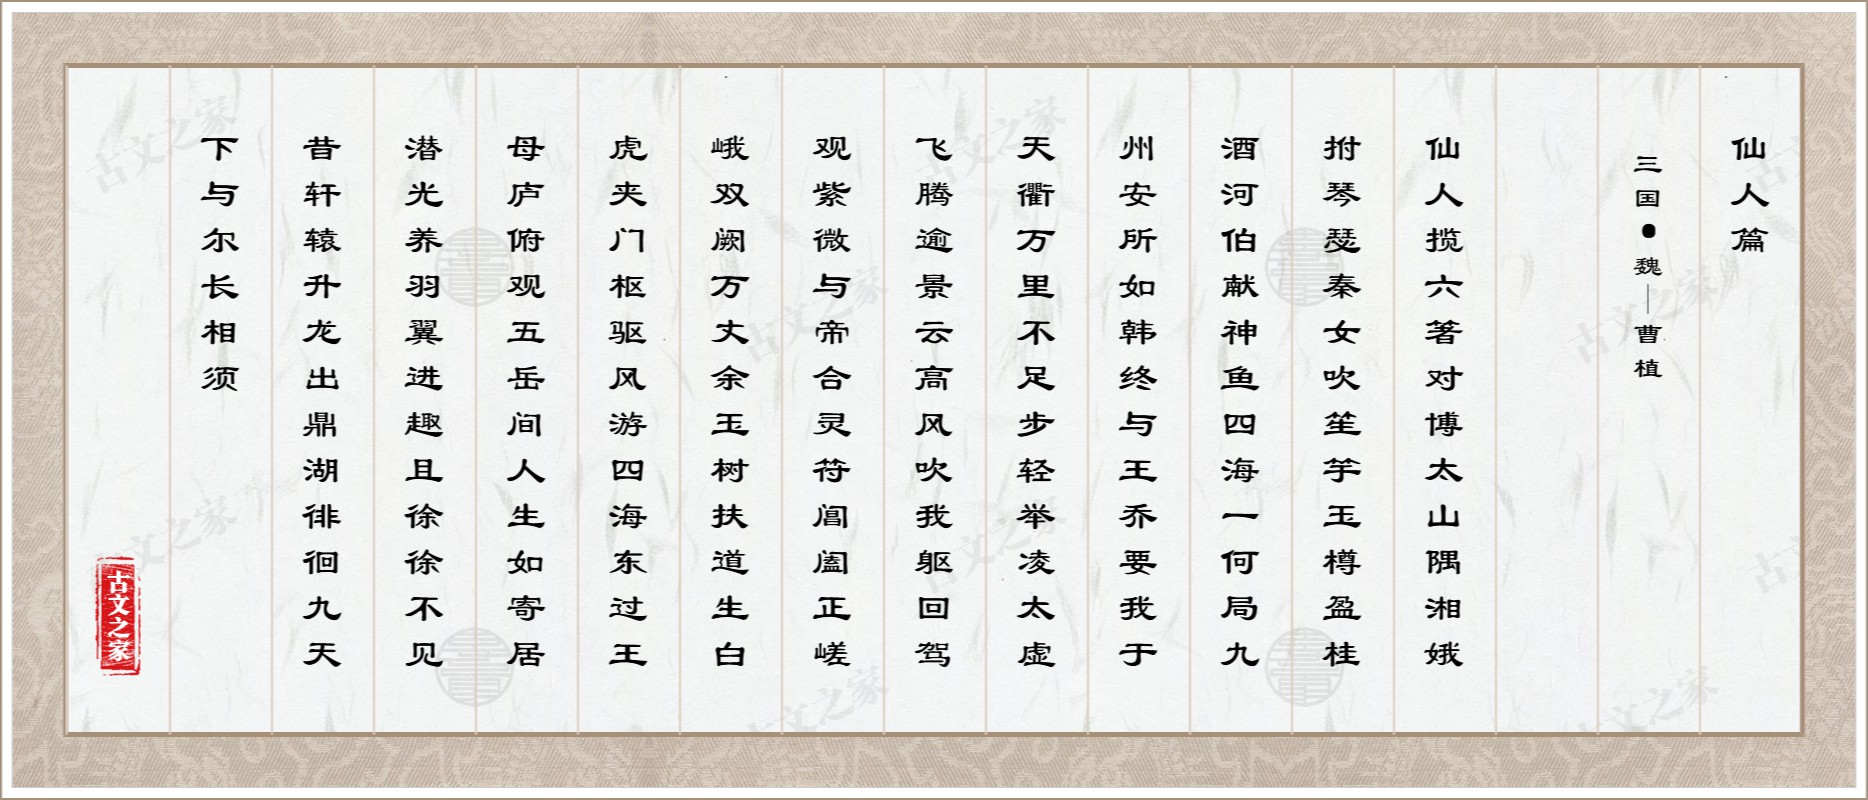 仙人篇
三国●魏—曹植
仙人揽六著对博太山隅湘娥
拊琴瑟秦女吹笙竽玉樽盈桂
酒河伯献神鱼四海一何局九
州安所如韩终与王乔要我于
天衢万里不足步轻举凌太虚
飞腾逾景云高风吹我躯回驾
观紫微与帝合灵符阊阖正嵯
峨双阙万丈余玉树扶道生白
虎夹门枢驱风游四海东过王
母庐俯观五岳间人生如寄居
潜光养羽翼进趣且徐徐不见
昔轩辕升龙出鼎湖徘徊九天
下与尔长相须
古文之家